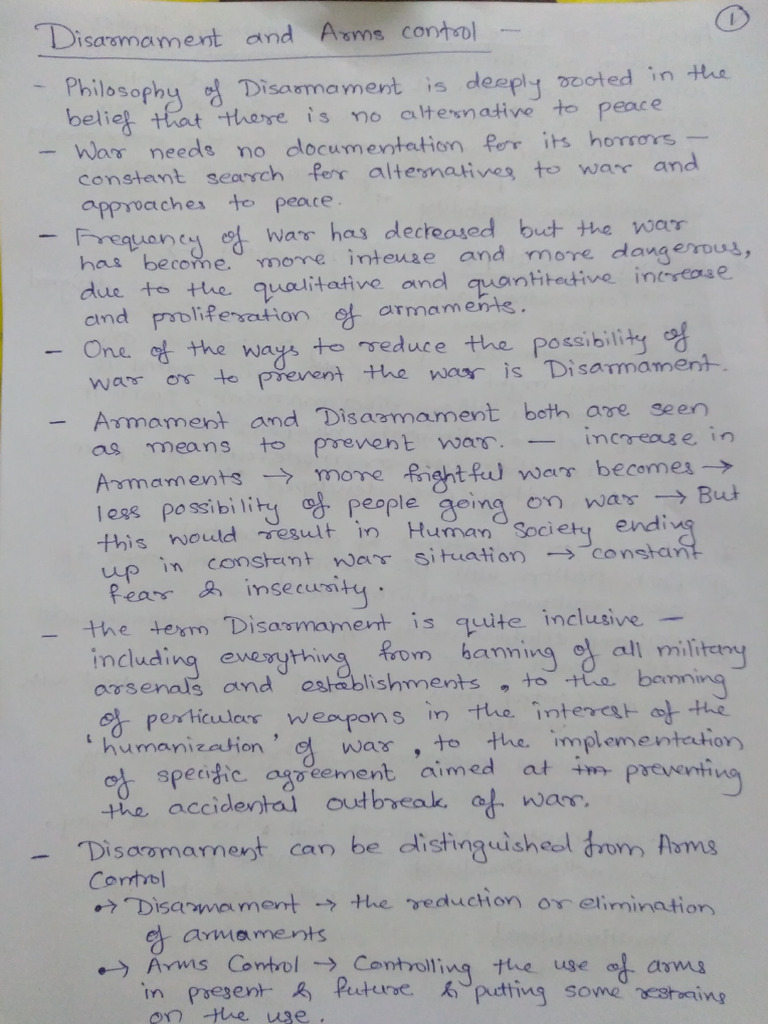 ①
Disarmament and Arms control –
- Philosophy of Disarmament is deeply rooted in the
belief that there is no alternative to peace
- War needs no documentation for its horrors –
constant search for alternatives to war and
approaches to peace.
- Frequency of war has decreased but the war
has become more intense and more dangerous,
due to the qualitative and quantitative increase
and proliferation of armaments.
- One of the ways to reduce the possibility of
war or to prevent the war is Disarmament.
- Armament and Disarmament both are seen
as means to prevent war. – increase in
Armaments → more frightful war becomes →
less possibility of people going on war → But
this would result in Human Society ending
up in constant war situation → constant
fear & insecurity.
- the term Disarmament is quite inclusive –
including everything from banning of all military
arsenals and establishments, to the banning
of perticular weapons in the interest of the
'humanization' of war, to the implementation
of specific agreement aimed at im preventing
the accidental outbreak of war.
- Disarmament can be distinguished from Arms
Control
•→ Disarmament → the reduction or elimination
of armaments
•→ Arms Control → Controlling the use of arms
in present & future & putting some restrains
on the use.